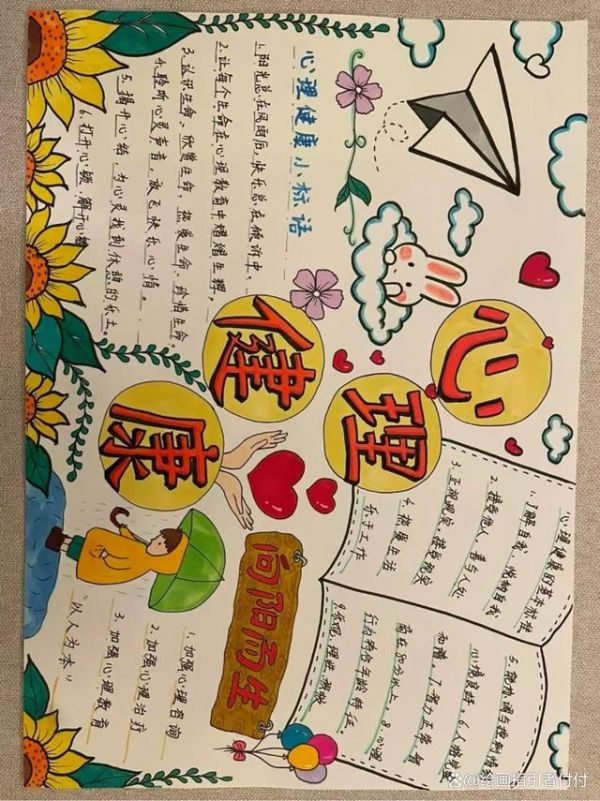 心理健康
心理健康小标语
1.阳光总在风雨后,快乐总在倾诉中。
2.让每个生命在心理教育中熠熠生辉。
3.认识生命、欣赏生命、热爱生命、珍惜生命。
4.聆听心灵声音,放飞快乐心情。
5.揭开心结,为心灵找到休憩的乐土。
6.打开心锁,解开心
心理健康的基本
1.了解自我、悦纳自我
2.接受他人、善与人处
3.正视现实、接受现实
4.热爱生活
乐于工作
5.能协调与控制情
心境良好 6.人格完整
和谐 7.智力正常,智
商在80分以上 8.心理
行为符合年龄特征
9.乐观、理性、
向阳而生
1.加强心理咨询
2.加强心理治疗
3.加强心理教育
"以人为本"
绘画指引者付付